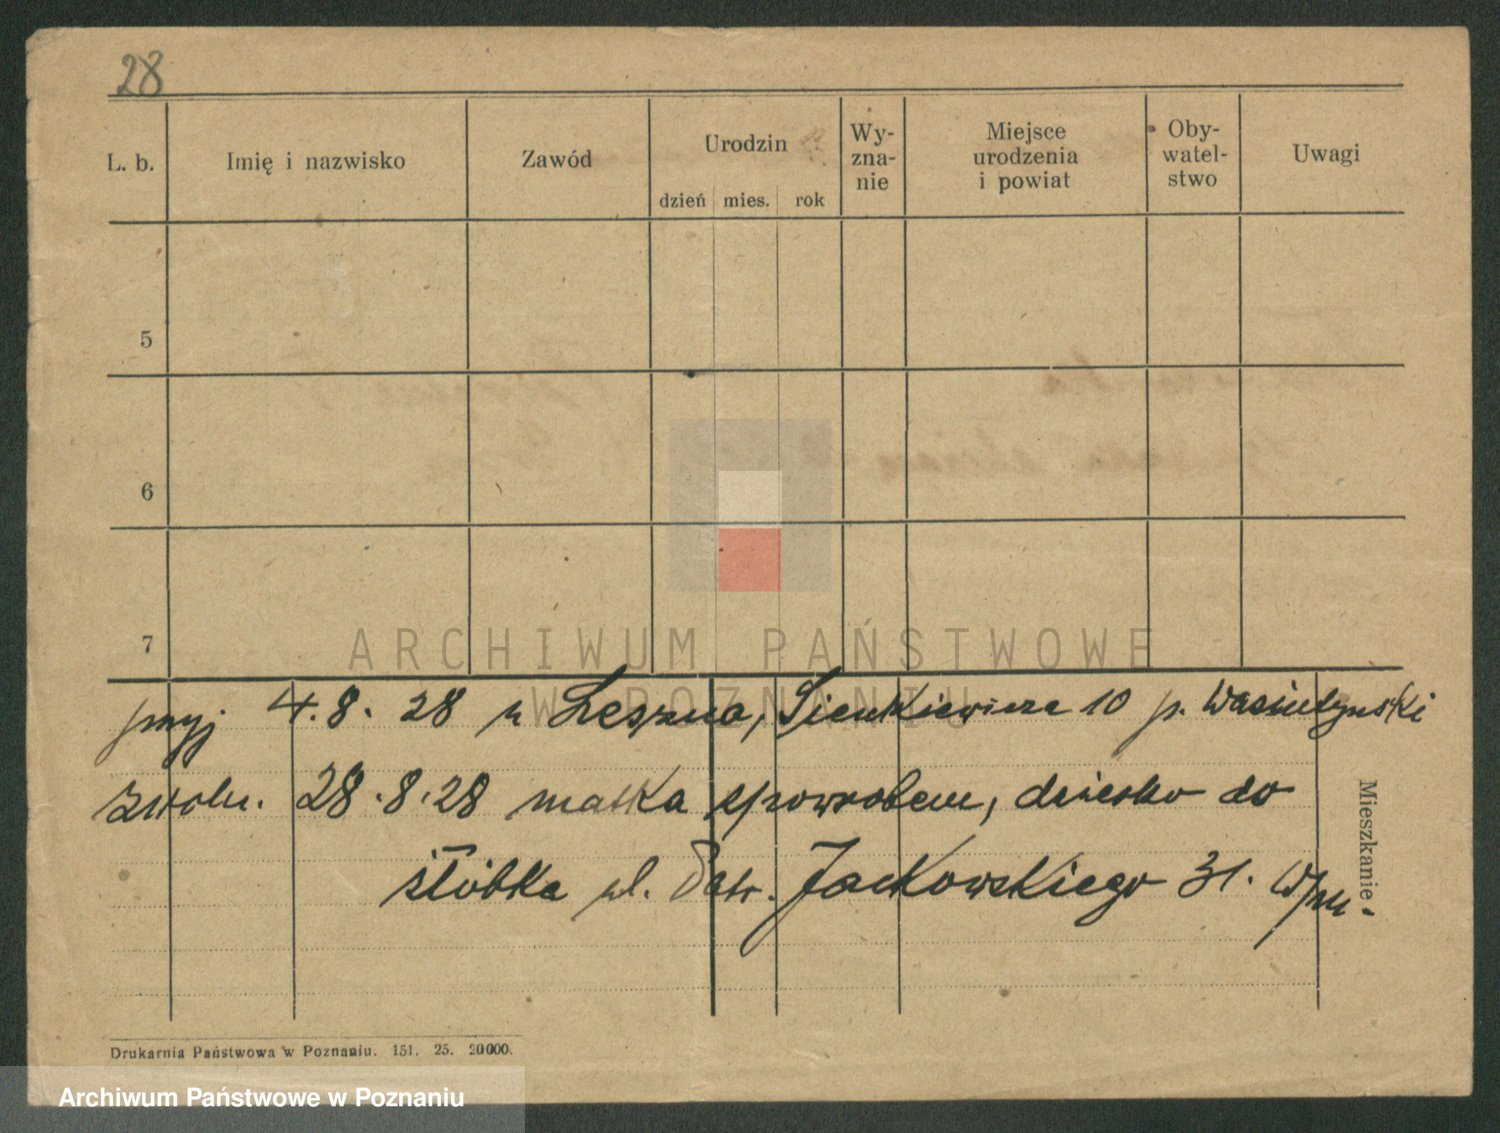 28
L. b. Imię i nazwisko Zawód Urodzin dzień mies. rok Wy-zna-nie Miejsce urodzenia i powiat Oby-watel-stwo Uwagi
5
6
7
ARCHIWUM PAŃSTWOWE
W POZNANIU
przyj 4.8.28 z Leszna, Sienkiewicza 10 p.
zwoln. 28.8.28 matka z powrotem, dziecko do
żłóbka ul. Jackowskiego 31.
Mieszkanie
Drukarnia Państwowa w Poznaniu. 151. 25. 20000.
Archiwum Państwowe w Poznaniu